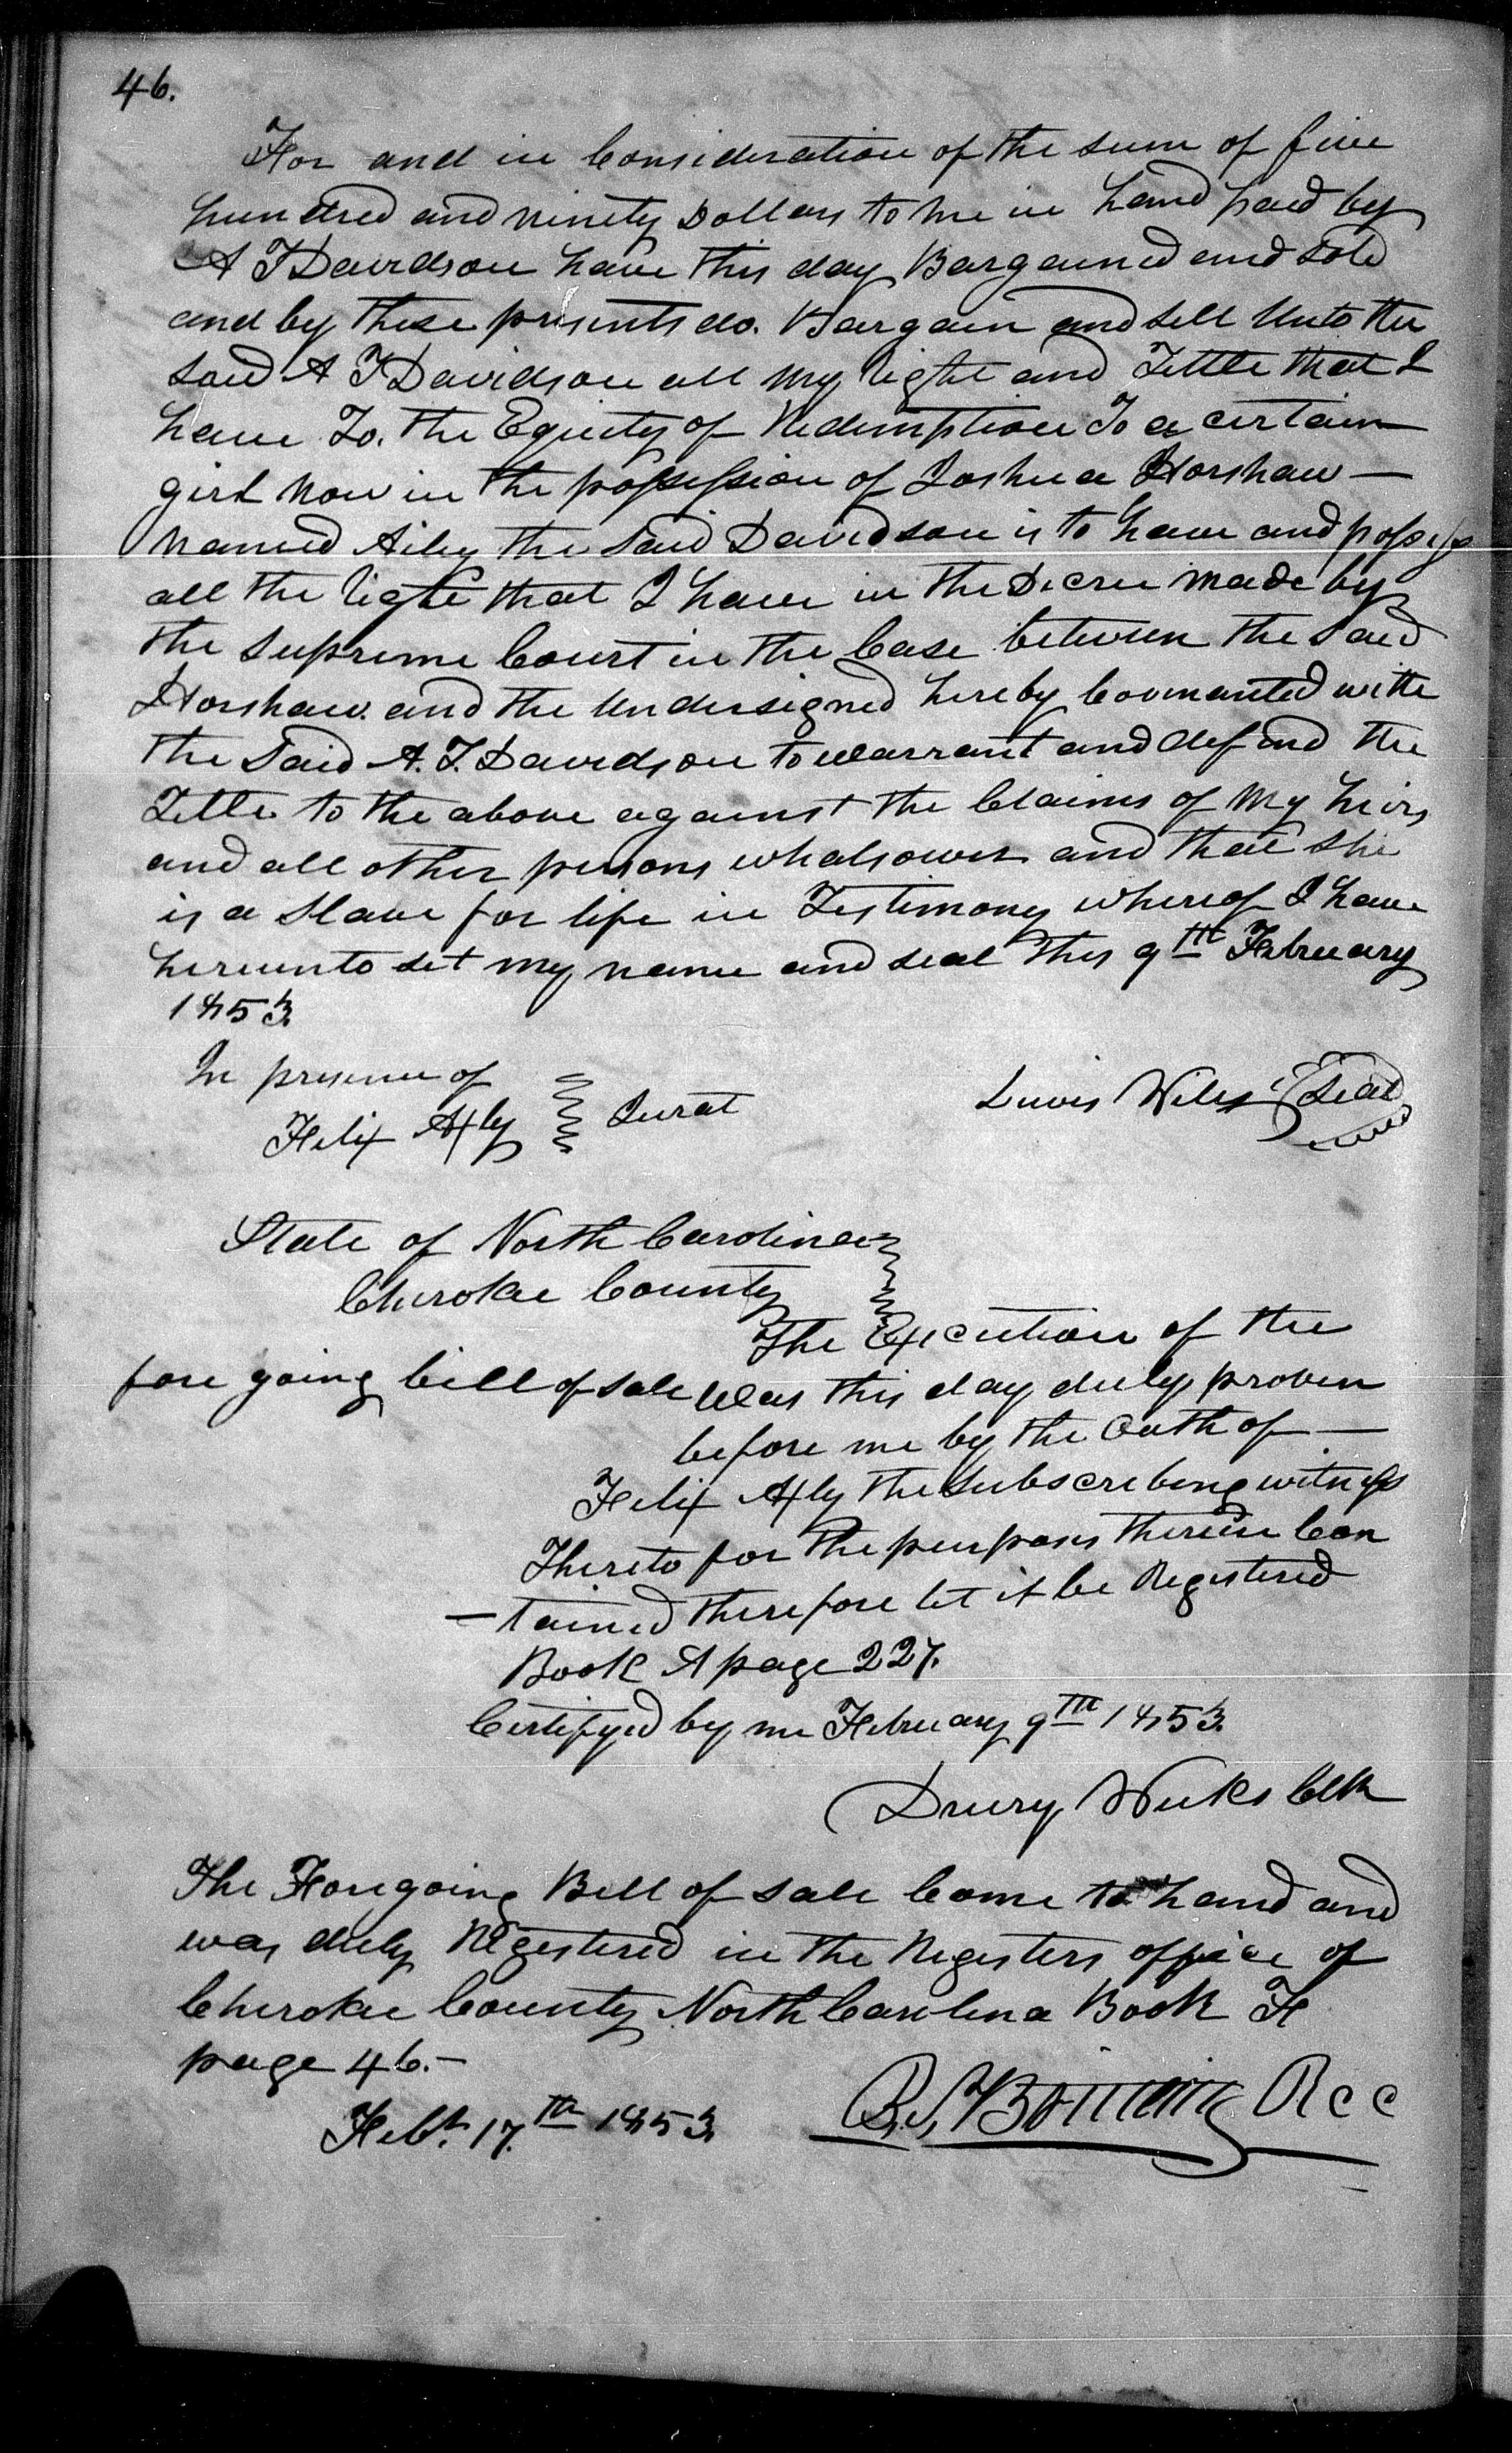 46.
For and in Consideration of the sum of five
hundred and ninety Dollars to me in hand paid by
A T Davidson have this day Bargained and sold
and by these presents do. Bargain and sell Unto the
said A T Davidson all my right and Tittle that I
have To. the Equity of Redemption To a certain
girl now in the possession of Joshua Harshaw —
named Ailey the said Davidson is to have and possess
all the right that I have in the Decree made by
the supreme Court in the Case between the said
Harshaw. and the Undersigned hereby Covenanted with
the said A. T. Davidson to warrant and defend the
Tittle to the above against the Claims of my heirs
and all other persons whatsoever and that she
is a slave for life in Testimony whereof I have
hereunto set my name and seal this 9th February
1853.
In presence of
Felix Axly Jurat
Lewis Wiles Seal
State of North Carolina
Cherokee County
The Execution of the
fore going bill of sale Was this day duly proven
before me by the Oath of —
Felix Axly the Subscribing witness
Thereto for the purposes therein Con
– tained therefore let it be Registered
Book A page 227.
Certifyed by me February 9th 1853.
Drury Weeks Clk
The Foregoing Bill of sale Came to hand and
was duly Registered in the Registers office of
Cherokee County North Carolina Book F
page 46.–
Feb. 17.th 1853.